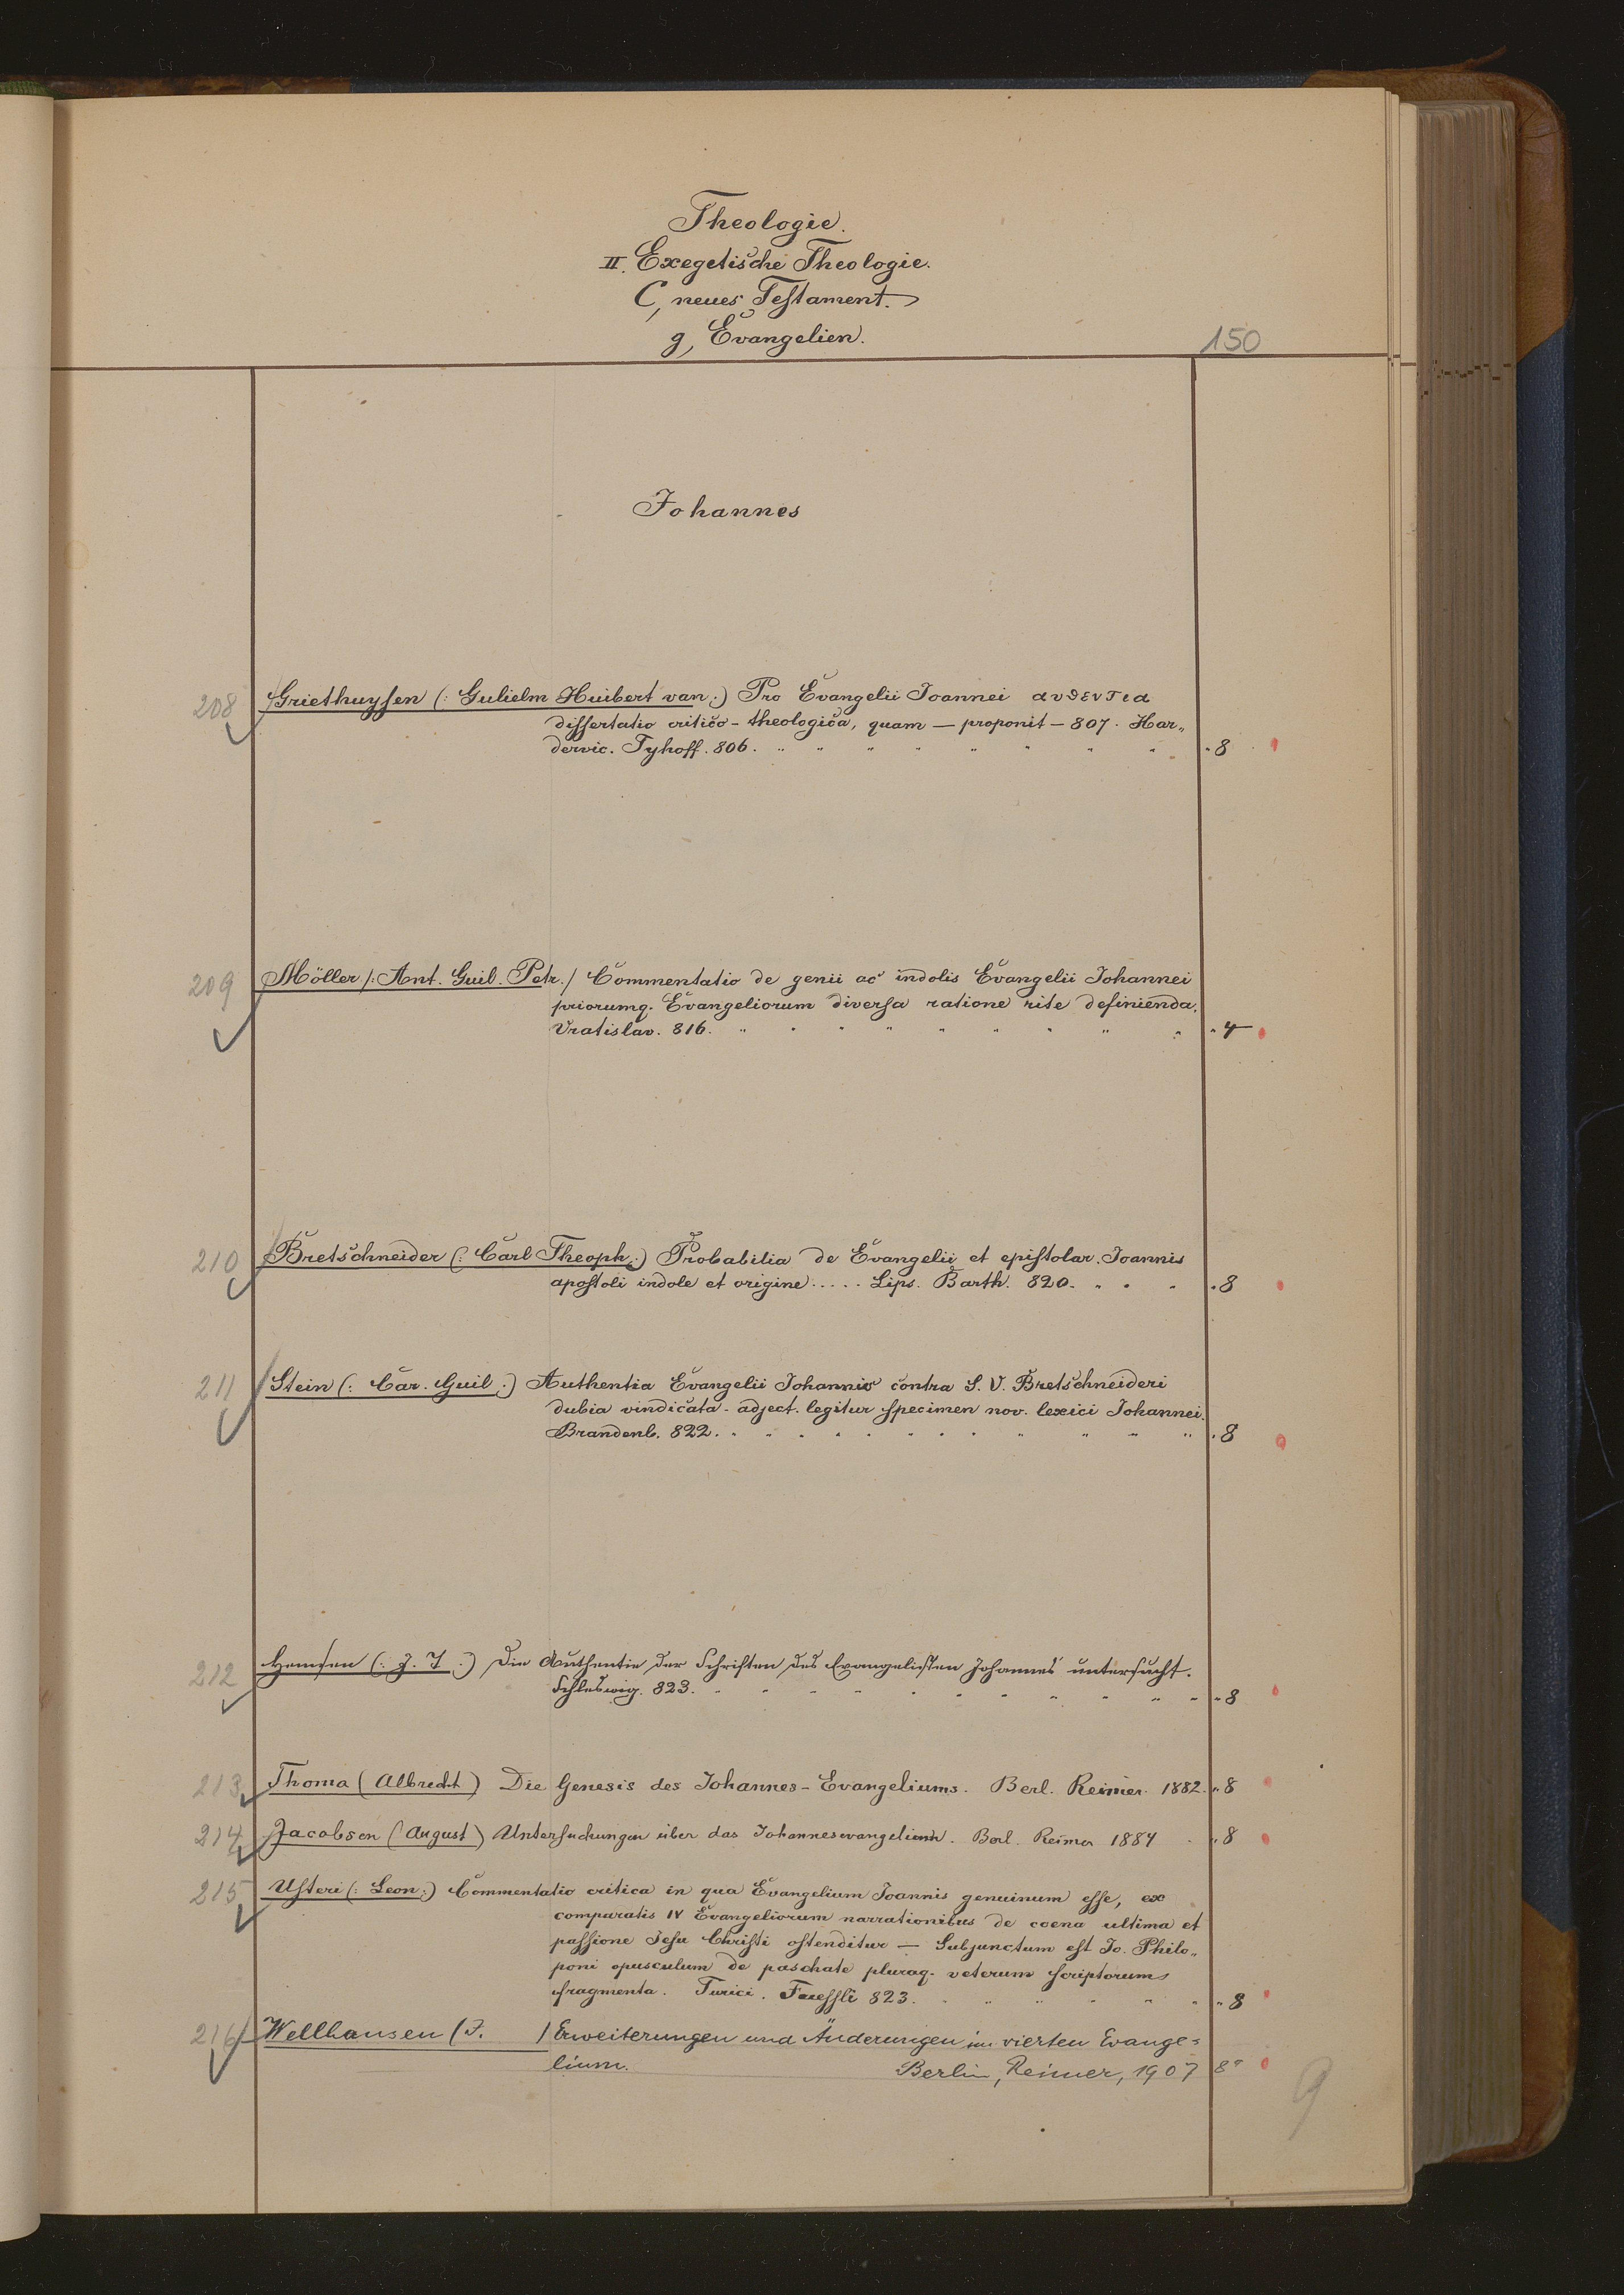 Theologie.
II. Exegetische Theologie.
C, neues Testament.
g, Evangelien.
150
Johannes
208 Griethuysen (: Gulielm Huibert van :) Pro Evangelii Joannei αυθεντια
dissertatio critico - theologica, quam — proponit — 807. Har„
dervic. Tyhoff. 806. „ 8
209 Möller /: Ant. Guil. Petr. / Commentatio de genii ac indolis Evangelii Johannei
priorumq. Evangeliorum diversa ratione rite definienda.
Vratislav. 816. „ 4
210 Bretschneider (: Carl Theoph :) Probabilia de Evangelii et epistolar. Joannis
apostoli indole et origine ..... Lips. Barth. 820. „ 8
211 Stein (: Car. Guil :) Authentia Evangelii Johannis contra S. V. Bretschneideri
dubia vindicata - adject. legitur specimen nov. lexici Johannei.
Brandenb. 822. „ 8
212 Hemsen (: J. T :) Die Authentie der Schriften des Evangelisten Johannes untersucht.
Schleswig. 823. „ 8
213 Thoma (Albrecht) Die Genesis des Johannes - Evangeliums. Berl. Reimer. 1882. „ 8
214 Jacobsen (August) Untersuchungen über das Johannesevangelium. Berl. Reimer 1884 „ 8
215 Usteri (: Leon :) Commentatio critica in qua Evangelium Joannis genuinum esse, ex
comparatis IV Evangeliorum narrationibus de coena ultima et
passione Jesu Christi ostenditur — Subjunctum est Jo. Philo„
poni opusculum de paschate pluraq. veterum scriptorum
fragmenta. Turici. Fuessli 823. „ 8
216 Wellhausen (J. / Erweiterungen und Änderungen im vierten Evange=
lium. Berlin, Reimer, 1907 8°
9